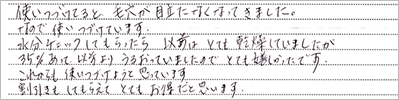 使いつづけてると 毛穴が目立たなくなってきました。
なので使いつづけています。
水分チェックしてもらったら 以前はとても乾燥していましたが
35%あって 以前よりうるおっていましたので とても嬉しかったです。
これからも使いつづけようと思っています
割引きもしてもらえて とてもお得だと思います。